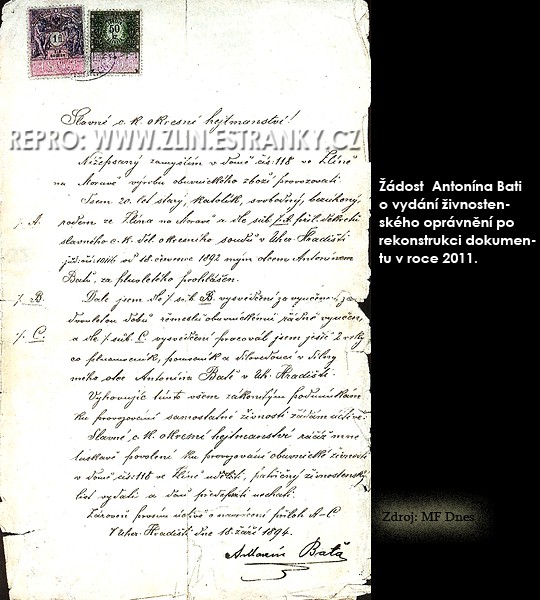 Slavné c. k. okresní hejtmanství!
REPRO: WWW.ZLIN.ESTRANKY.CZ
Nížepsaný zamýšlím v domě čís: 118 ve Zlíně
na Moravě výrobu obuvnického zboží provozovati.
Jsem 20. let starý, katolík, svobodný, bezúhonný
./. A.
rodem ze Zlína na Moravě a dle sub ./. A. příl. dekretu
slavného c. k. del. okresního soudu v Uher. Hradišti
od 18. července 1892 mým otcem Antonínem
Baťů, za plnoletého prohlášen.
./. B.
Dále jsem dle ./. sub. B. vysvědčení za vyučenou za
dvouletou dobu řemeslu obuvnickému, řádně vyučen,
./. C.
a dle ./. sub. C. vysvědčení pracoval jsem ještě 2 roky
co pomocník, a v dílny
mého otce Antonína Baťů v Uh. Hradišti.
Vyhovujíc tímto všem zákonitým podmínkám
ku provozování samostatné živnosti žádám uctivě:
Slavné c. k. okresní hejtmanství račiž mně
laskavě povolení ku provozování obuvnické živnosti
v domě čís: 118 ve Zlíně uděliti, patřičný živnostenský
list vydati a daň předepsati nechati.
Zároveň prosím uctivě o navrácení příloh A–C.
V Uher. Hradišti dne 18. září 1894.
Antonín Baťa
Žádost Antonína Bati
o vydání živnosten-
ského oprávnění po
rekonstrukci dokumen-
tu v roce 2011.
Zdroj: MF Dnes